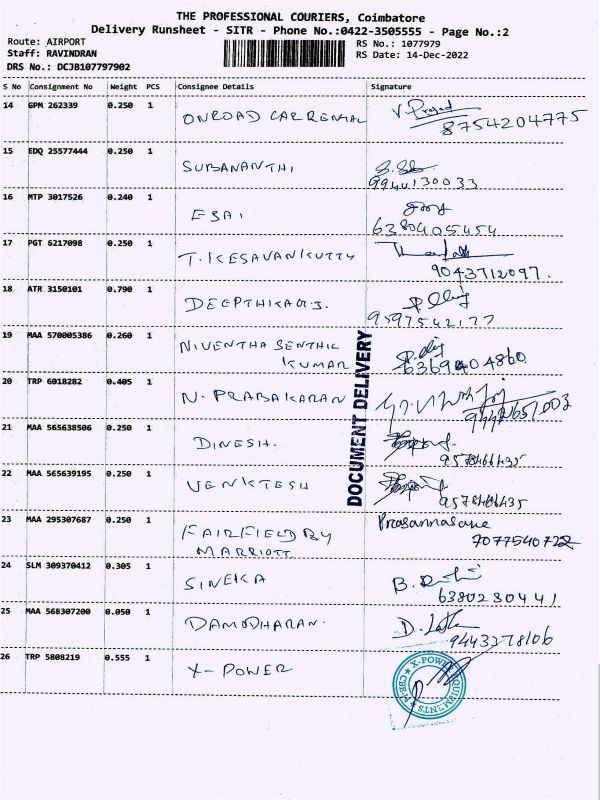 THE PROFESSIONAL COURIERS, Coimbatore
Delivery Runsheet - SITR - Phone No.:0422-3505555 - Page No.:2
Route: AIRPORT
RS No.: 1077979
Staff: RAVINDRAN
RS Date: 14-Dec-2022
DRS No.: DCJB107797902
S No Consignment No Weight PCS Consignee Details Signature
14 GPM 262339 0.250 1 ONROAD CAR RENTAL
8754204775
15 EDQ 25577444 0.250 1 SUBANANTHI
9944130033
16 MTP 3017526 0.240 1 ESAI
6380405454
17 PGT 6217098 0.250 1 T. KESAVANKUTTY
9043712097.
18 ATR 3150101 0.790 1 DEEPTHIKA
9597542177
19 MAA 570005386 0.260 1 NIVENTHA SENTHIL
KUMAR
6369404860
20 TRP 6018282 0.405 1 N. PRABAKARAN
21 MAA 565638506 0.250 1 DINESH.
22 MAA 565639195 0.250 1 VENKTESH
23 MAA 295307687 0.250 1 FAIRFIELD BY
MARRIOTT
7077540722
24 SLM 309370412 0.305 1 SINEKA
6380230441
25 MAA 568307200 0.050 1 DAMODHARAN.
9443278106
26 TRP 5808219 0.555 1 X-POWER
DOCUMENT DELIVERY
X-POWER